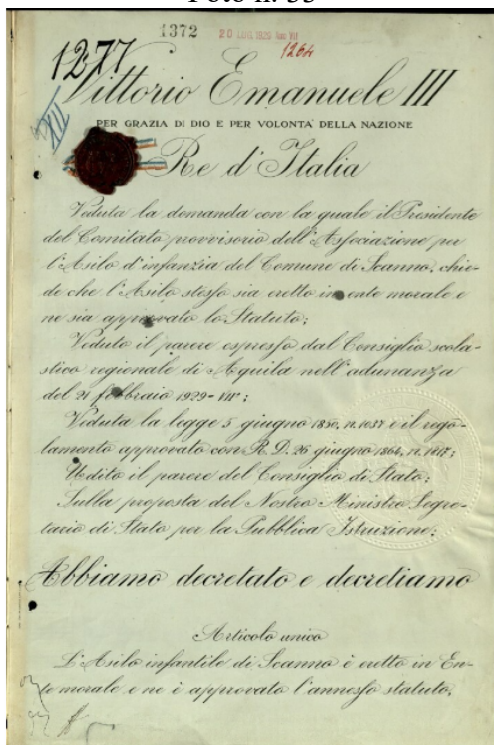 Foto n. 33
1372 20 LUG. 1929 Anno VII
1277 1264
Vittorio Emanuele III
PER GRAZIA DI DIO E PER VOLONTÀ DELLA NAZIONE
XIX
Re d'Italia
Veduta la domanda con la quale il Presidente
del Comitato provvisorio dell'Associazione per
l'Asilo d'infanzia del Comune di Scanno, chie-
de che l'Asilo stesso sia eretto in ente morale e
ne sia approvato lo Statuto;
Veduto il parere espresso dal Consiglio scola-
stico regionale di Aquila nell'adunanza
del 21 febbraio 1929-VII°;
Veduta la legge 5 giugno 1850, n. 1037 e il rego-
lamento approvato con R. D. 26 giugno 1864, n. 1817;
Udito il parere del Consiglio di Stato;
Sulla proposta del Nostro Ministro Segre-
tario di Stato per la Pubblica Istruzione;
Abbiamo decretato e decretiamo
Articolo unico
L'Asilo infantile di Scanno è eretto in En-
te morale e ne è approvato l'annesso statuto.